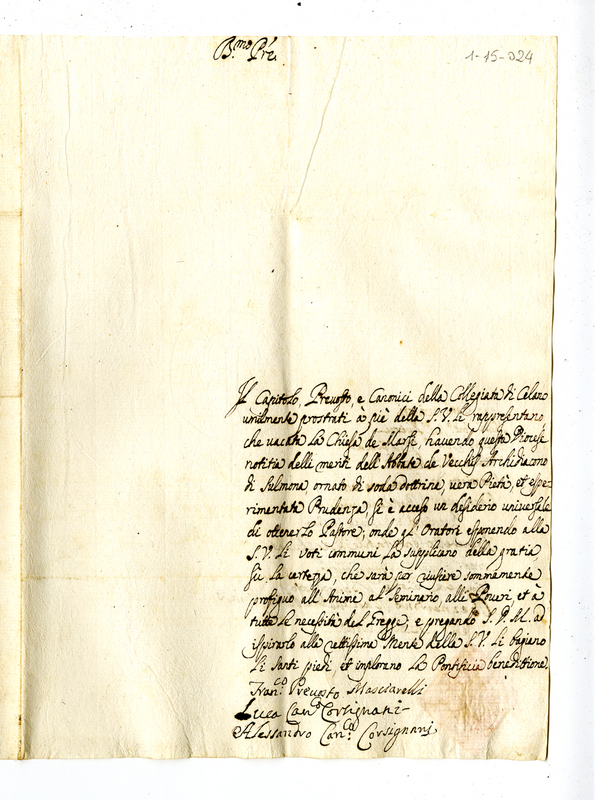 B.mo Pre.
1-15-024
Il Capitolo, Prevosto, e Canonici della Collegiata di Celano
umilmente prostrati à piè della S.V. Le rappresentano
che vacata La Chiesa de Marsi, havendo questa Diocese
notitia delli meriti dell'Abbate de Vecchis Archidiacono
di Sulmona, ornato di soda dottrina, vera Pietà, et espe-
rimentata Prudenza, si è acceso un desiderio universale
di ottenerlo Pastore; onde gl'Oratori esponendo alla
S.V. Li voti communi La supplicano della gratia
sù la certezza, che sarà per riuscire sommamente
proficuo all'Anime al Seminario, alli Poveri, et à
tutte le necessità del Gregge, e pregando S.D.M. ad
ispirarlo alla rettissima Mente della S.V. Li bagiano
Li Santi piedi, et implorano La Pontificia beneditione
Fran.co Prevosto Masciarelli
Luca Can.co Corsignani
Alessandro Can.co Corsignani